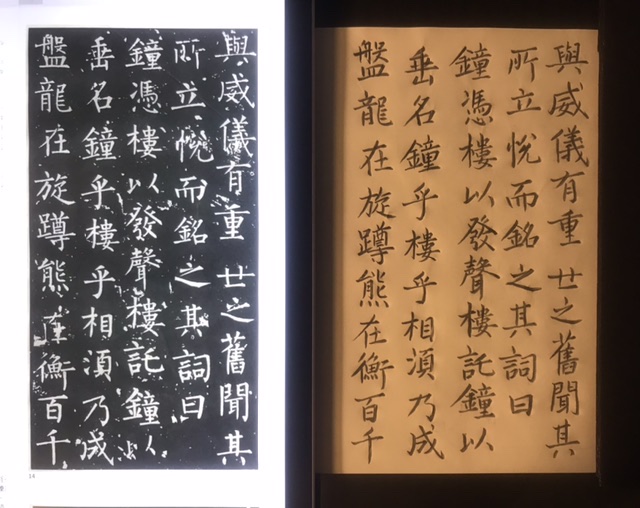 與威儀有重廿之舊聞其
所立悅而銘之其詞曰
鐘憑樓以發聲樓託鐘以
垂名鐘乎樓乎相湏乃成
盤龍在旋蹲熊在衡百千
14
與威儀有重廿之舊聞其
所立悅而銘之其詞曰
鐘憑樓以發聲樓託鐘以
垂名鐘乎樓乎相湏乃成
盤龍在旋蹲熊在衡百千